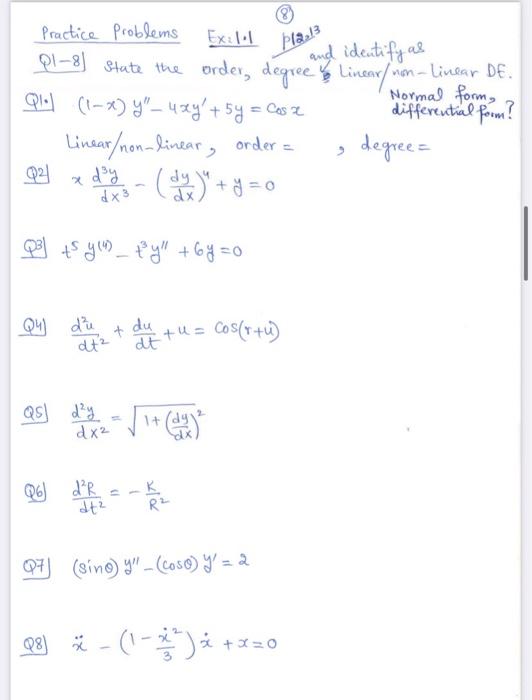 ⑧
Practice Problems Ex:1.1 P12,13
Q1-8] State the order, degree & Linear/non-Linear DE.
and identify as
Normal form, differential form?
Q1.] (1-x) y'' - 4xy' + 5y = Cos x
Linear/non-linear, order = , degree =
Q2] x d³y/dx³ - (dy/dx)⁴ + y = 0
Q3] t⁵ y⁽⁴⁾ - t³ y'' + 6y = 0
Q4] d²u/dt² + du/dt + u = Cos(r+u)
Q5] d²y/dx² = √(1+(dy/dx)²)
Q6] d²R/dt² = - K/R²
Q7] (sinθ) y'' - (cosθ) y' = 2
Q8] ẍ - (1 - ẋ²/3) ẋ + x = 0